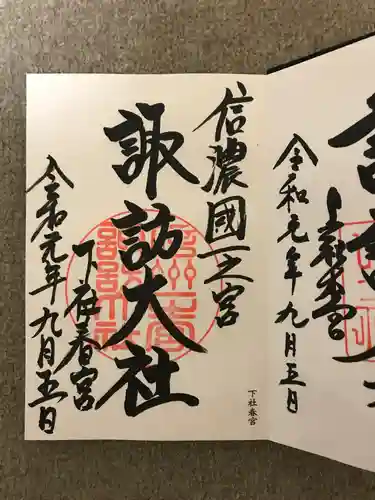 信濃國一之宮
諏訪大社
下社春宮
令和元年九月五日
下社春宮
令和元年九月五日